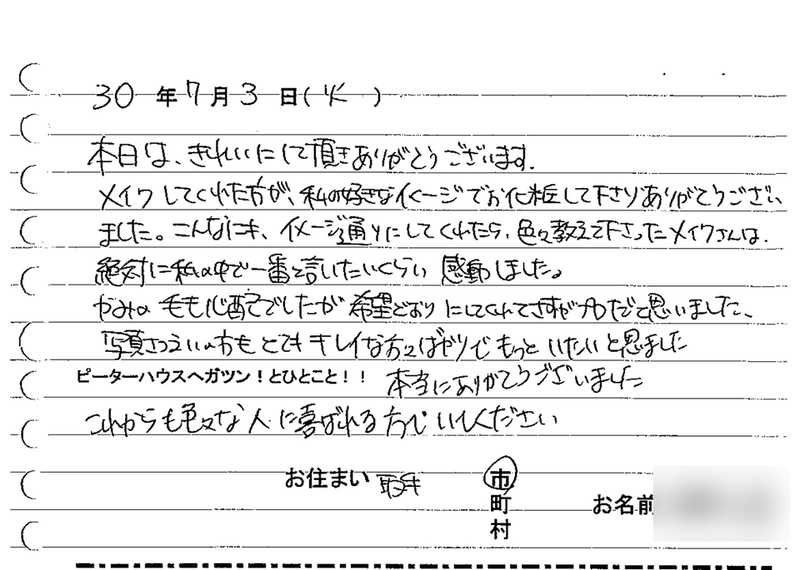 30 年 7 月 3 日(火)
本日は、きれいにして頂きありがとうございます。
メイクしてくれた方が、私の好きなイメージでお化粧して下さりありがとうござい
ました。こんなにも、イメージ通りにしてくれたら、色々教えて下さったメイクさんは、
絶対に私の中で一番と言いたいくらい 感動しました。
かみの毛も心配でしたが 希望どおりにしてくれてさすがプロだと思いました、
写真さつえいの方も とても キレイな方ばかりで もっと いたいと思ました
ピーターハウスへガツン!とひとこと!! 本当にありがとうございました
これからも色々な人に喜ばれる方でいてください
お住まい 取手 市
町
村
お名前